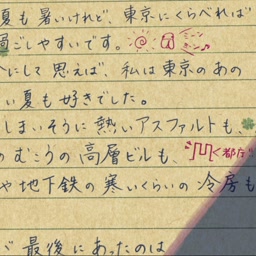 夏も暑いけれど、東京にくらべれば
過ごしやすいです。 ミーン ミーン♪
にして思えば、私は東京のあの
い夏も好きでした。
しまいそうに熱いアスファルトも、
のむこうの高層ビルも、 都庁
や地下鉄の寒いくらいの冷房も
最後にあったのは